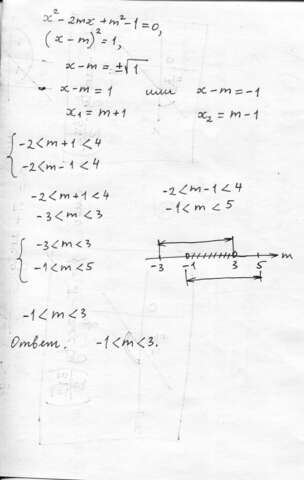 x² - 2mx + m² - 1 = 0,
(x - m)² = 1,
x - m = ±√1
x - m = 1 или x - m = -1
x₁ = m + 1 x₂ = m - 1
{ -2 < m + 1 < 4
-2 < m - 1 < 4
-2 < m + 1 < 4 -2 < m - 1 < 4
-3 < m < 3 -1 < m < 5
{ -3 < m < 3
-1 < m < 5
-3 -1 3 5 m
-1 < m < 3
Ответ. -1 < m < 3.